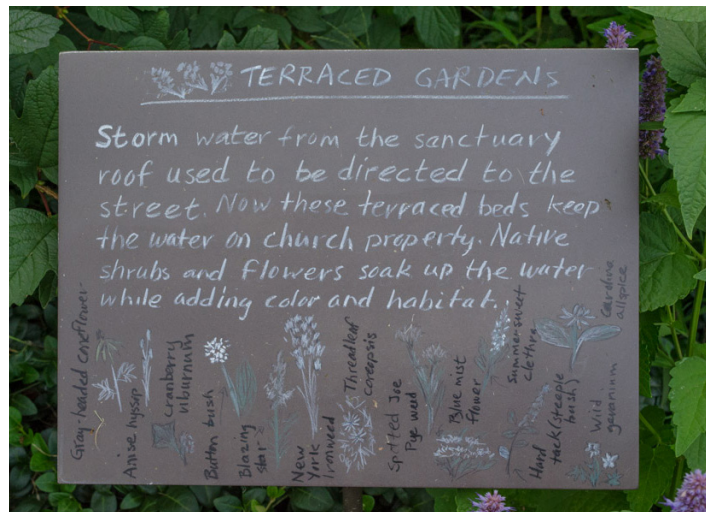 TERRACED GARDENS
Storm water from the sanctuary
roof used to be directed to the
street. Now these terraced beds keep
the water on church property. Native
shrubs and flowers soak up the water
while adding color and habitat.
Gray-headed coneflower
Anise hyssop
Cranberry
viburnum
Button bush
Blazing
star
New
York
Ironweed
Threadleaf
coreopsis
Spotted Joe
Pye weed
Blue mist
flower
Summersweet
clethra
Hard
tack (steeple
bush)
Wild
geranium
Carolina
allspice